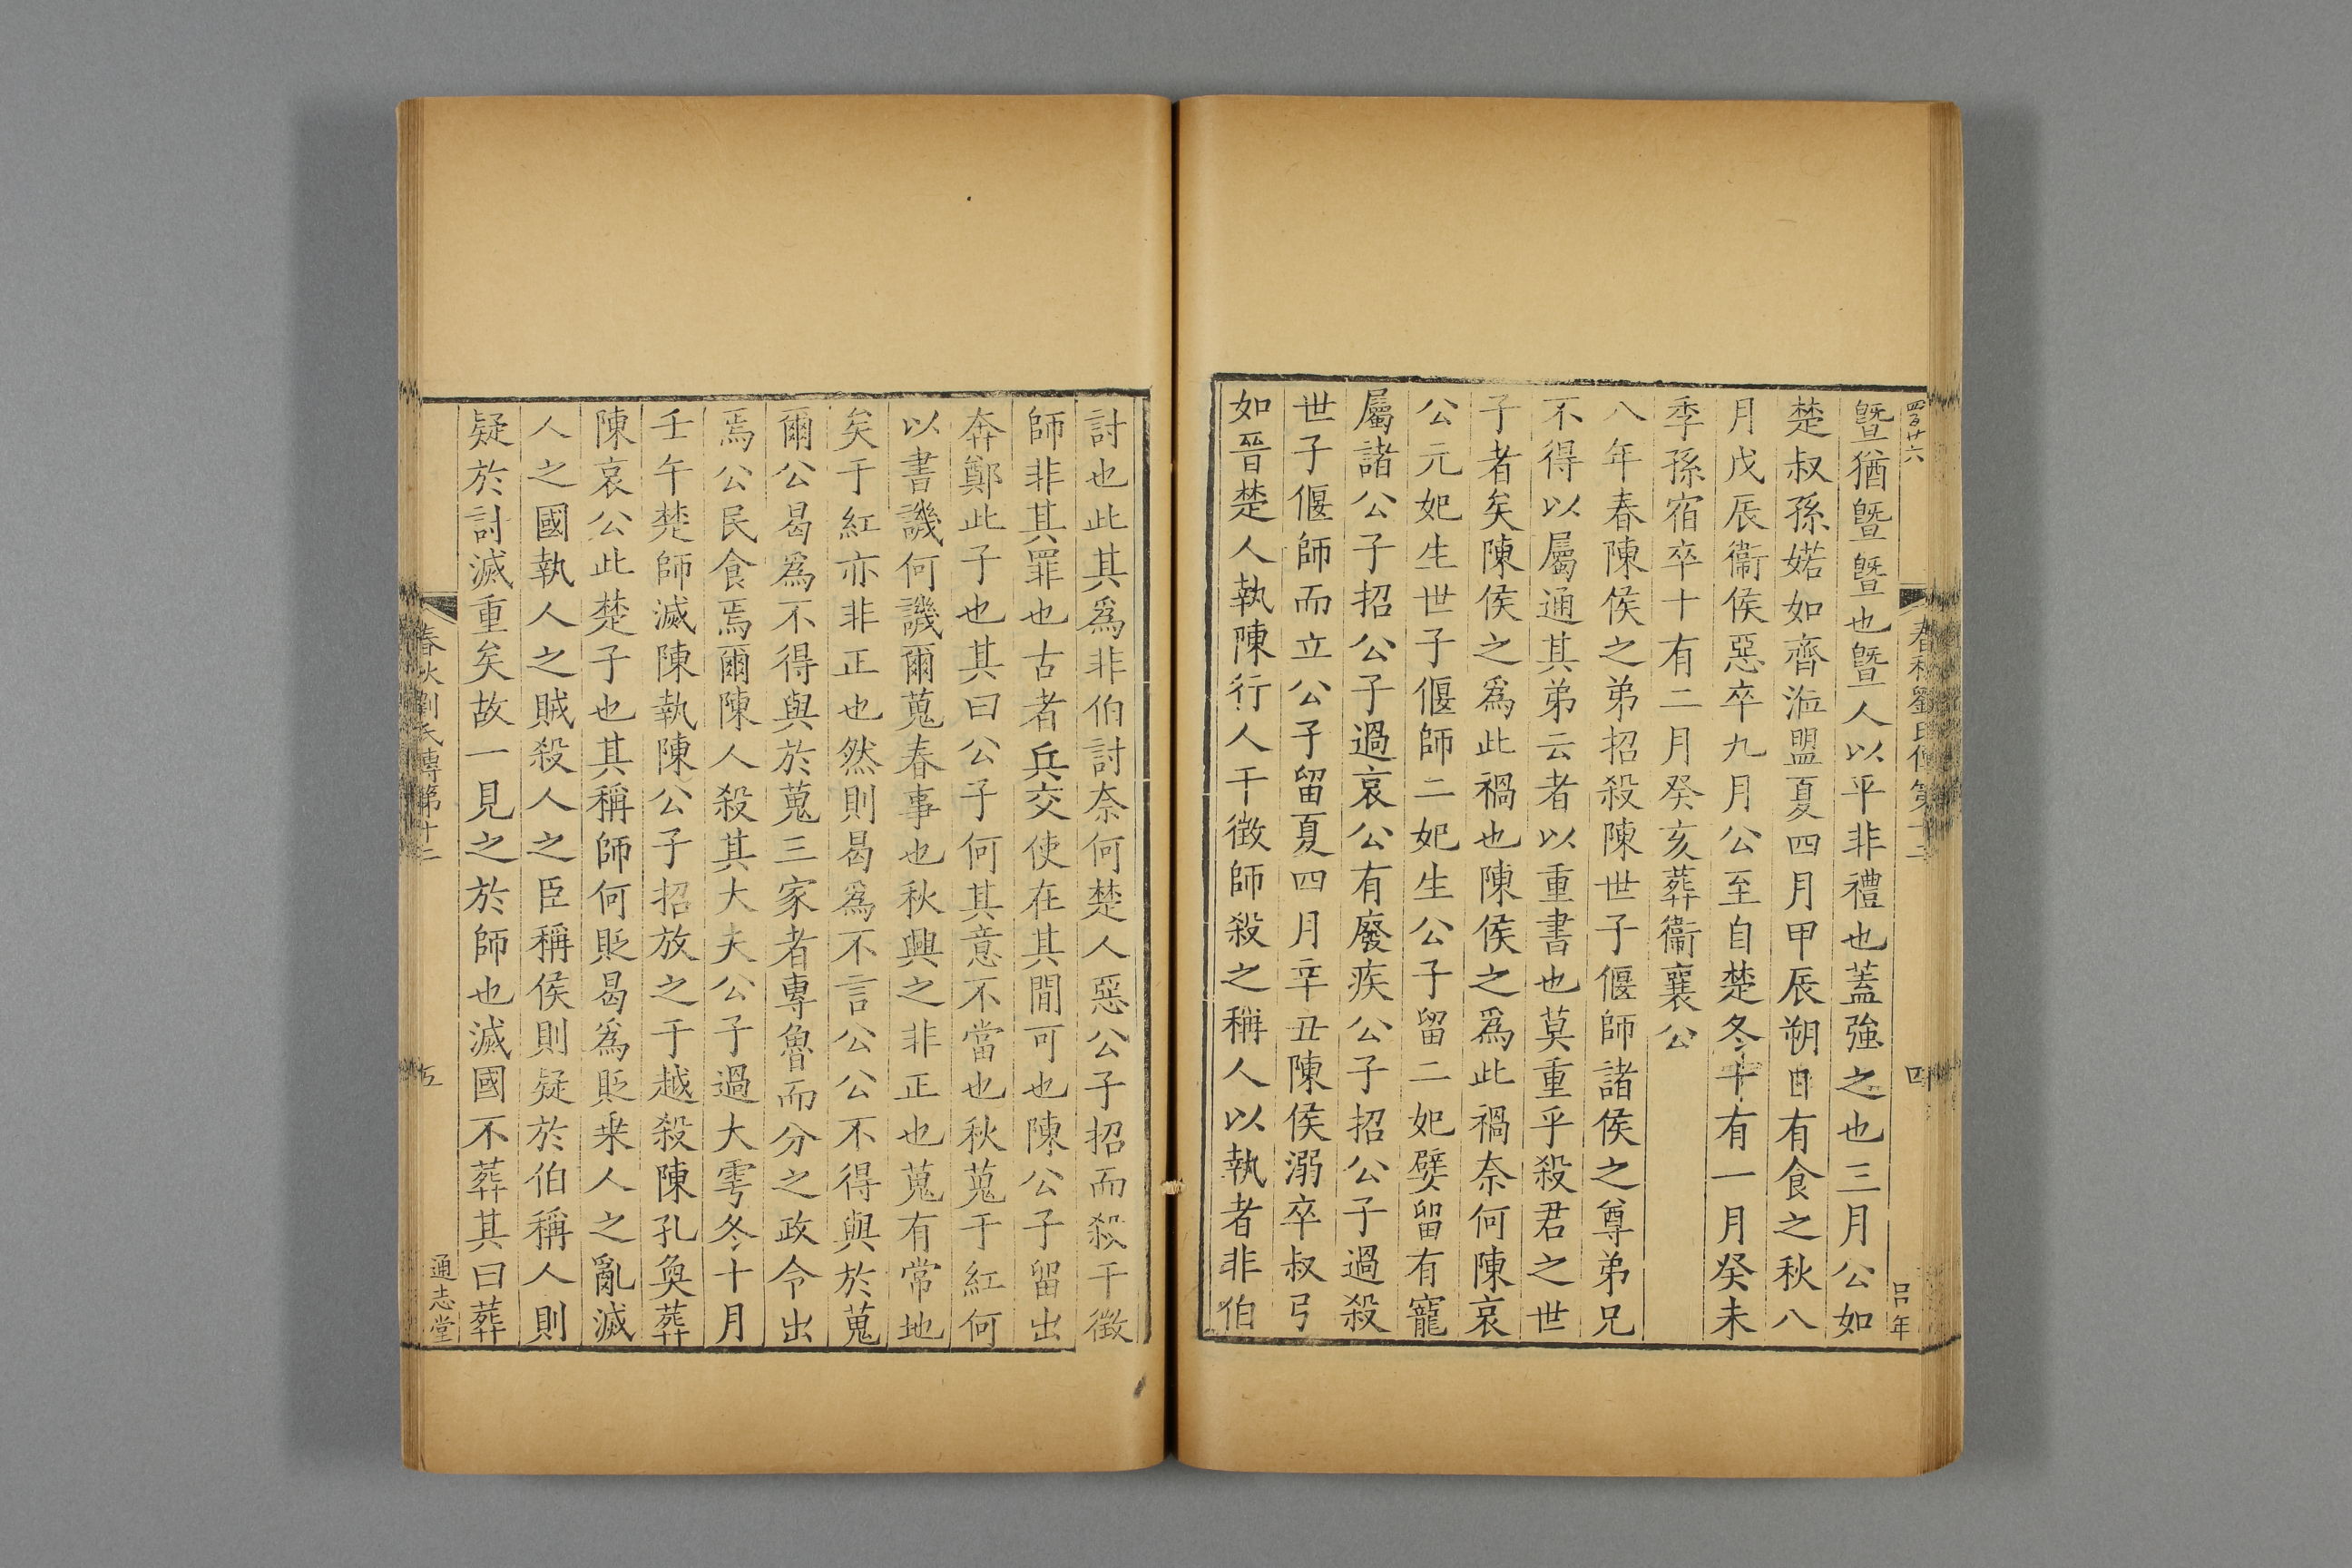 四百廿六
春秋劉氏傳第十二
四
呂年
曁猶曁曁也曁人以平非禮也蓋強之也三月公如
楚叔孫婼如齊涖盟夏四月甲辰朔日有食之秋八
月戊辰衞侯惡卒九月公至自楚冬十有一月癸未
季孫宿卒十有二月癸亥葬衞襄公
八年春陳侯之弟招殺陳世子偃師諸侯之尊弟兄
不得以屬通其弟云者以重書也莫重乎殺君之世
子者矣陳侯之爲此禍也陳侯之爲此禍奈何陳哀
公元妃生世子偃師二妃生公子留二妃嬖留有寵
屬諸公子招公子過哀公有廢疾公子招公子過殺
世子偃師而立公子留夏四月辛丑陳侯溺卒叔弓
如晉楚人執陳行人干徵師殺之稱人以執者非伯
討也此其爲非伯討奈何楚人惡公子招而殺干徵
師非其罪也古者兵交使在其間可也陳公子留出
奔鄭此子也其曰公子何其意不當也秋蒐于紅何
以書譏何譏爾蒐春事也秋興之非正也蒐有常地
矣于紅亦非正也然則曷爲不言公公不得與於蒐
爾公曷爲不得與於蒐三家者專魯而分之政令出
焉公民食焉爾陳人殺其大夫公子過大雩冬十月
壬午楚師滅陳執陳公子招放之于越殺陳孔奐葬
陳哀公此楚子也其稱師何貶曷爲貶乗人之亂滅
人之國執人之賊殺人之臣稱侯則疑於伯稱人則
疑於討滅重矣故一見之於師也滅國不葬其曰葬
春秋劉氏傳第十二
五
通志堂